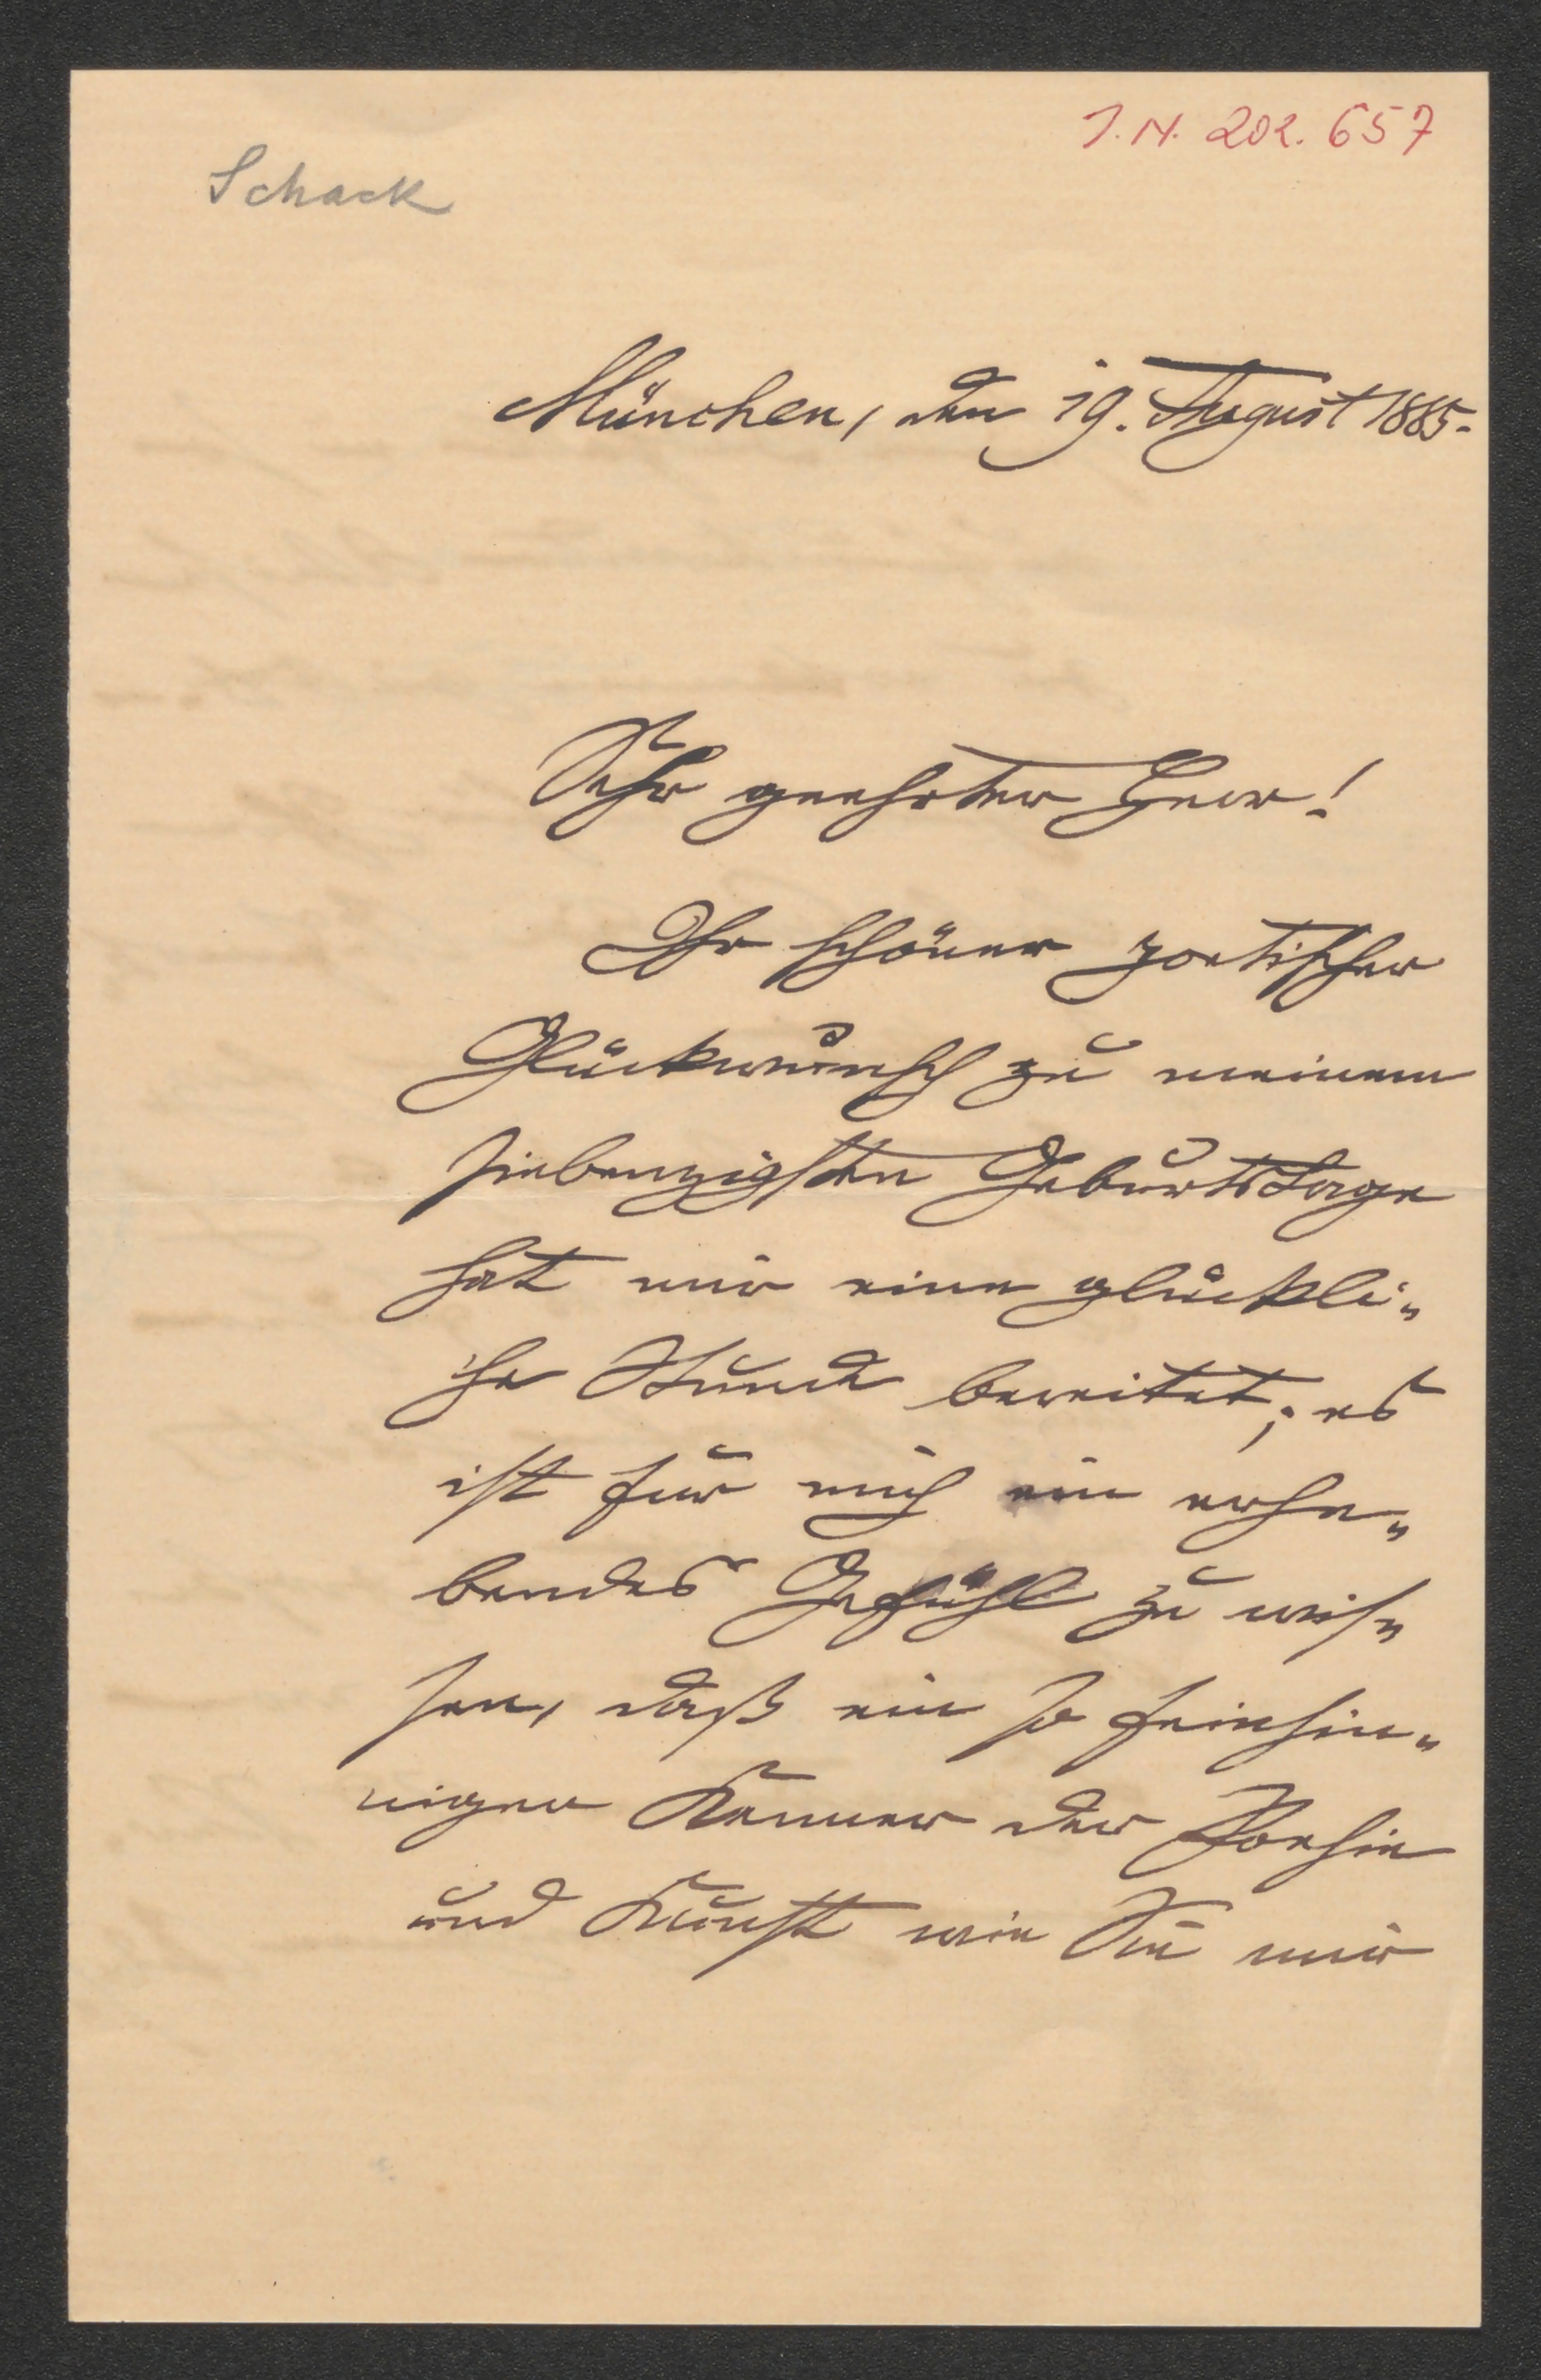 J.N. 202.657
Schack
München, den 19. August 1885.
Sehr geehrter Herr!
Ihr schöner poetischer
Glückwunsch zu meinem
siebenzigsten Geburtstage
hat mir eine glückli„
che Stunde bereitet; es
ist für mich ein erhe„
bendes Gefühl zu wis„
sen, daß ein so feinsin„
niger Kenner der Poesie
und Kunst wie Sie mir